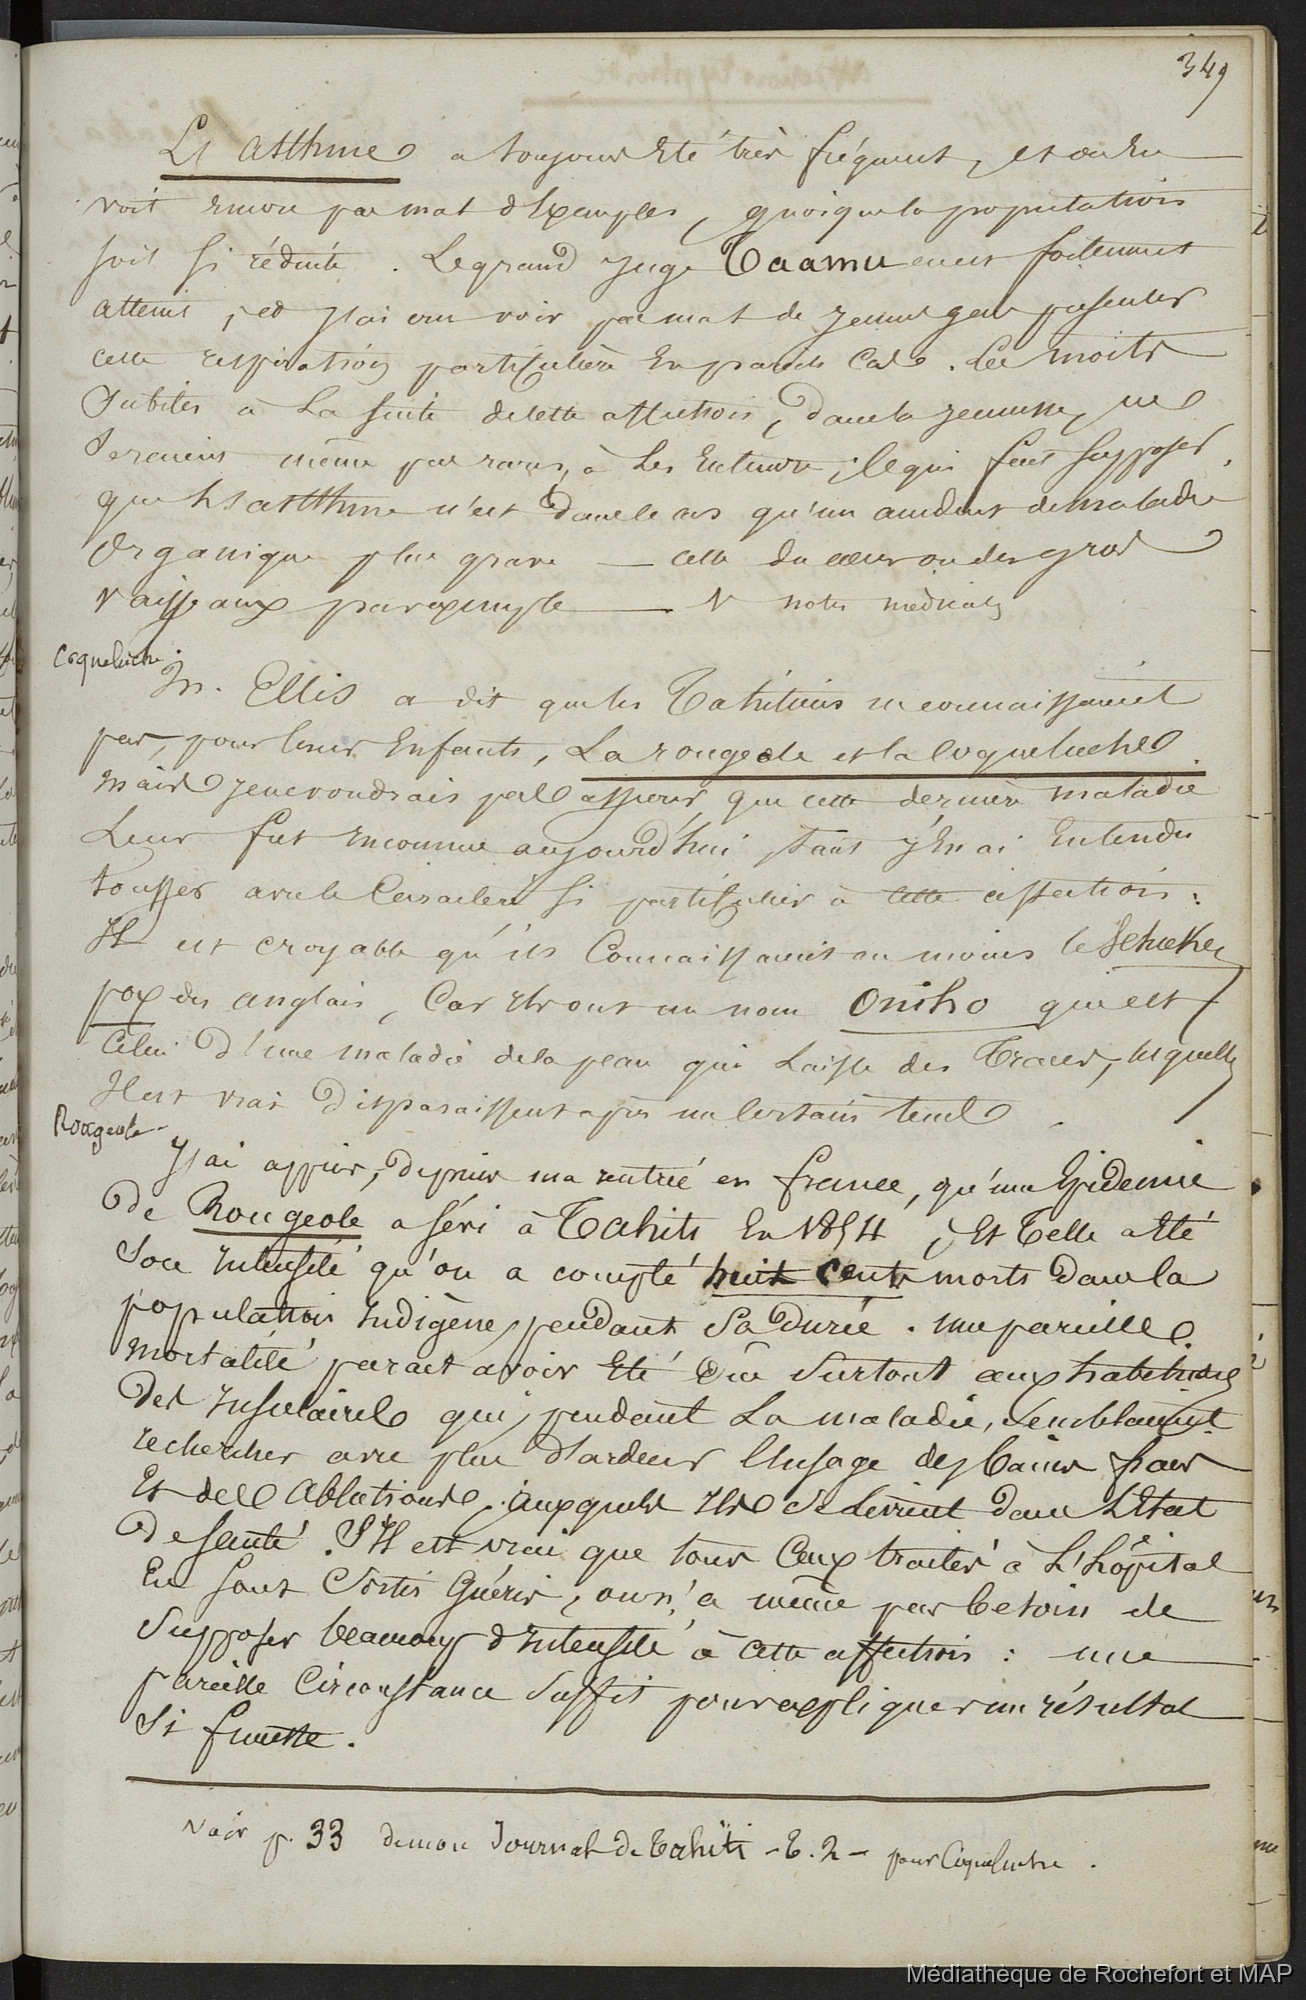 349
L'asthme a toujours été très fréquent, et on en
voit encore pas mal d'exemples, quoique la population
soit si réduite. Le grand juge Taamu en est fortement
atteint, et j'ai cru voir pas mal de jeunes gens présenter
cette respiration particulière en pareils cas. Les morts
subites à la suite de cette affection, dans la jeunesse, ne
seraient même pas rares, à les entendre, ce qui fait supposer
que l'asthme n'est dans le cas qu'un accident de maladie
organique plus grave — celle du cœur ou des gros
vaisseaux par exemple — V notes médicales
Coqueluche.
M. Ellis a dit que les Tahitiens ne connaissaient
pas, pour leurs enfants, La rougeole et la coqueluche
mais je ne voudrais pas assurer que cette dernière maladie
leur fut inconnue aujourd'hui, tant j'en ai entendu
tousser avec le caractère si particulier à cette affection :
Il est croyable qu'ils connaissaient au moins le chicken
pox des anglais, car ils ont un nom Oniho qui est
celui d'une maladie de la peau qui laisse des traces, lesquelles
il est vrai disparaissent après un certain tems.
Rougeole.
J'ai appris, depuis ma rentrée en france, qu'une Epidemie
de Rougeole a sévi à Tahiti en 1854, et telle a été
son intensité qu'on a compté huit cents morts dans la
population indigène, pendant sa durée. Une pareille
mortalité parait avoir été due surtout aux habitudes
des insulaires qui, pendant la maladie, semblaient
rechercher avec plus d'ardeur l'usage des bains frais
et des ablutions, auxquels ils se livrent dans l'état
de santé. S'il est vrai que tous ceux traités à l'hôpital
en sont sortis guéris, on n'a même pas besoin de
supposer beaucoup d'intensité à cette affection : une
pareille circonstance suffit pour expliquer un résultat
si funeste.
Voir p. 33 de mon Journal de Tahiti - T. 2 - pour Coqueluche.
Médiathèque de Rochefort et MAP